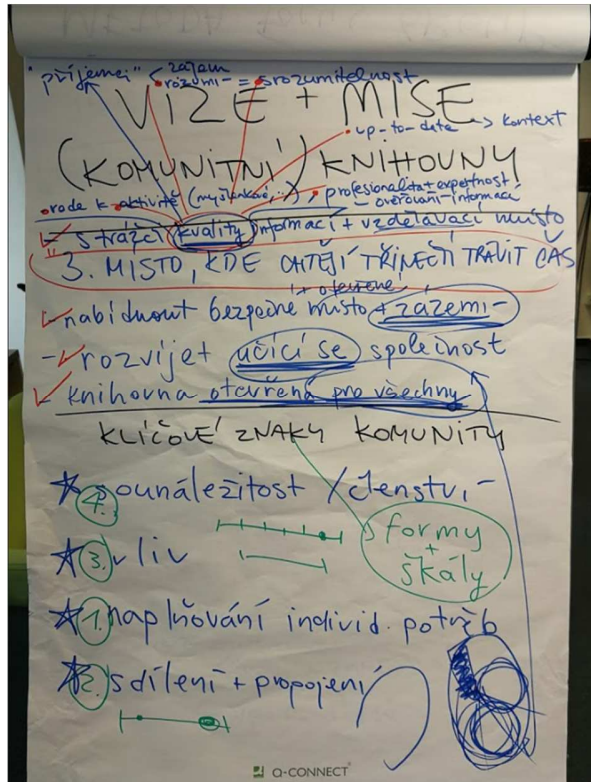 "příjemci" < zájem
rozumí - = srozumitelnost
VIZE + MISE
up-to-date → kontext
(KOMUNITNÍ) KNIHOVNY
vede k aktivitě (myšlenkové, ...), profesionalita + expertnost
ověřování informací
- strážci kvality informací + vzdělávací místo
"3. MÍSTO, KDE CHTĚJÍ TŘINEČTÍ TRÁVIT ČAS
i + otevřené
- nabídnout bezpečné místo + zázemí -
- rozvíjet učící se společnost
- knihovna otevřená pro všechny
KLÍČOVÉ ZNAKY KOMUNITY
4. sounáležitost / členství -
formy
+
škály
3. vliv
1. naplňování individ. potřeb
2. sdílení + propojení
Q-CONNECT